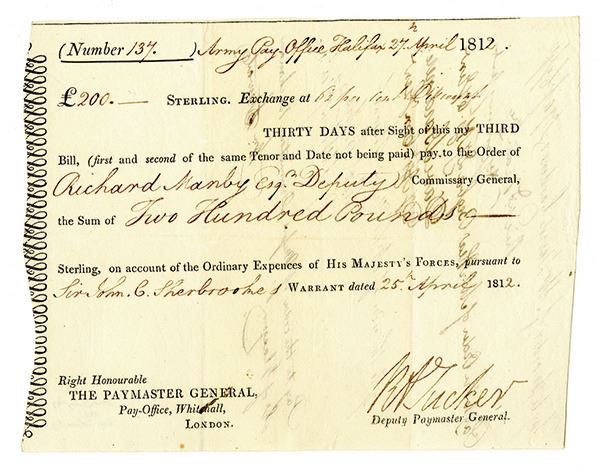 (Number 137. ) Army Pay-Office, Halifax 27th April 1812.
£200.— STERLING. Exchange at per Cent Discount
THIRTY DAYS after Sight of this my THIRD
Bill, (first and second of the same Tenor and Date not being paid) pay to the Order of
Richard Manby Esqr. Deputy Commissary General,
the Sum of Two Hundred Pounds —
Sterling, on account of the Ordinary Expences of HIS MAJESTY'S FORCES, pursuant to
Sir John C. Sherbrooke's WARRANT dated 25th April 1812.
Right Honourable
THE PAYMASTER GENERAL,
Pay-Office, Whitehall,
LONDON.
Tucker
Deputy Paymaster General.